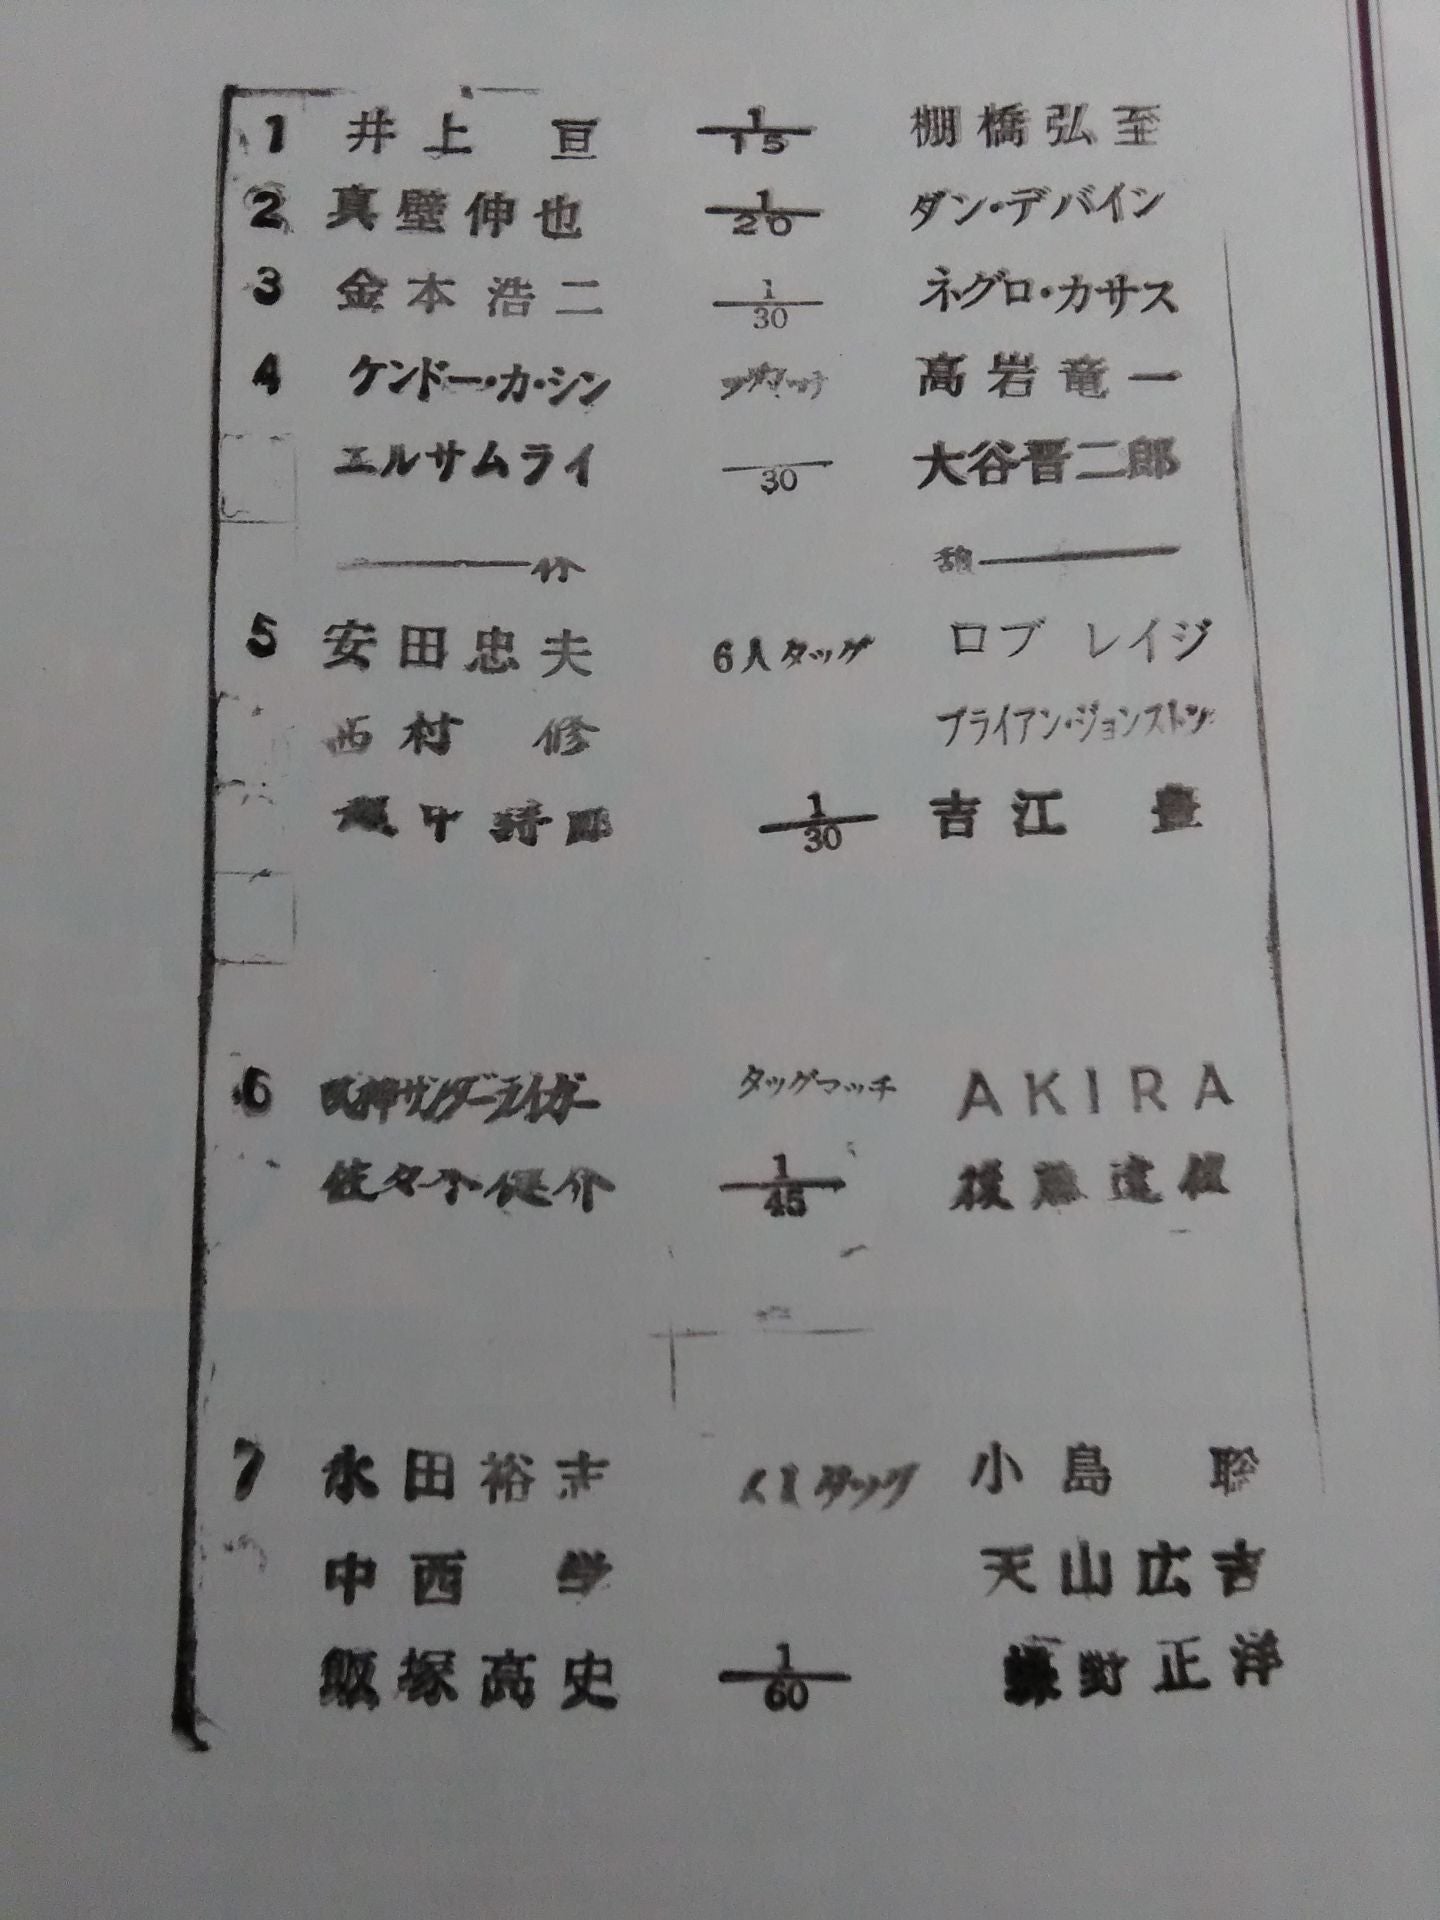 1 井上 亘 1/15 棚橋弘至
2 真壁伸也 1/20 ダン・デバイン
3 金本浩二 1/30 ネグロ・カサス
4 ケンドー・カ・シン 高岩竜一
エルサムライ 30 大谷晋二郎
休 憩
5 安田忠夫 6人タッグ ロブ レイジ
西村 修 ブライアン・ジョンストン
1/30 吉江 豊
6 獣神サンダーライガー タッグマッチ AKIRA
佐々木健介 1/45 後藤達俊
7 永田裕志 タッグ 小島 聡
中西 学 天山広吉
飯塚高史 1/60 蝶野正洋